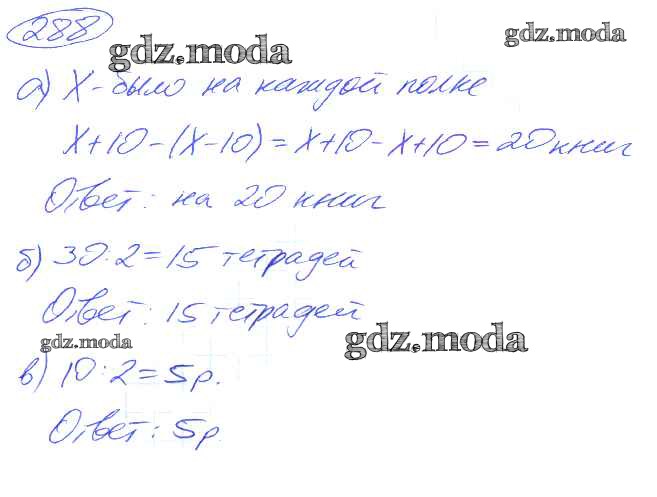 288
gdz.moda
gdz.moda
а) x - было на каждой полке
x+10-(x-10)=x+10-x+10=20 книг
Ответ: на 20 книг
б) 30:2=15 тетрадей
Ответ: 15 тетрадей
gdz.moda
gdz.moda
в) 10:2=5р.
Ответ: 5р.